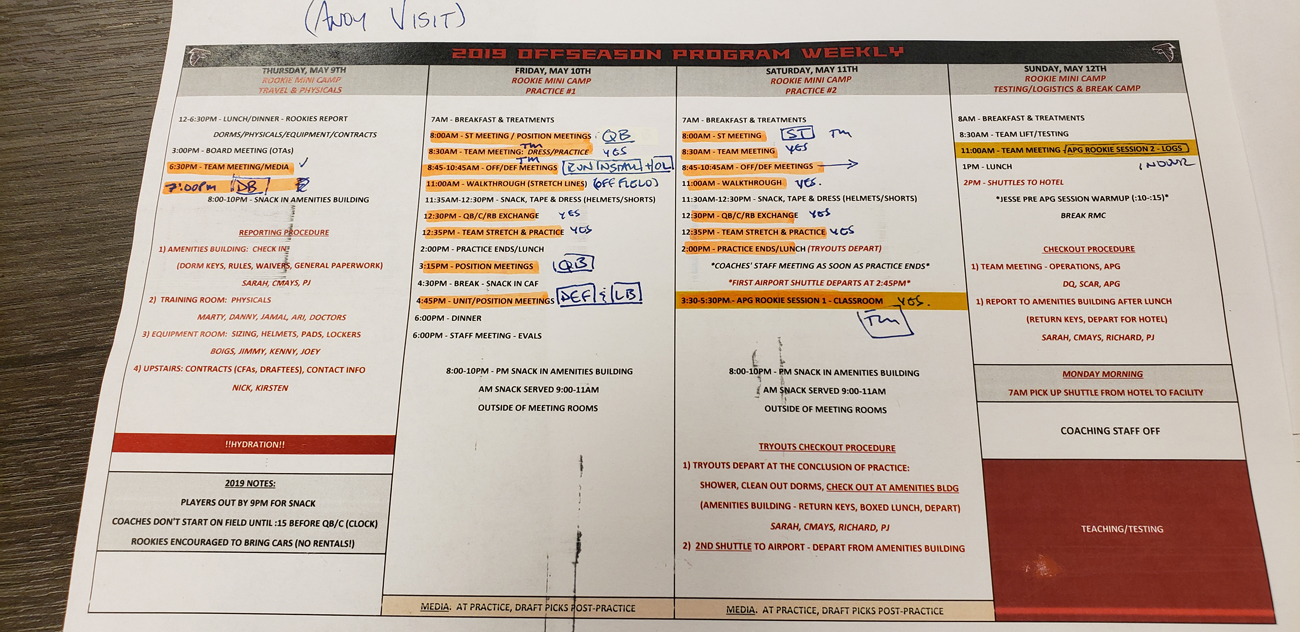 (ANDY VISIT)
2019 OFFSEASON PROGRAM WEEKLY
THURSDAY, MAY 9TH
ROOKIE MINI CAMP
TRAVEL & PHYSICALS
12-6:30PM - LUNCH/DINNER - ROOKIES REPORT
DORMS/PHYSICALS/EQUIPMENT/CONTRACTS
3:00PM - BOARD MEETING (OTAs)
6:30PM - TEAM MEETING/MEDIA ✓
7:00PM DB
8:00-10PM - SNACK IN AMENITIES BUILDING
REPORTING PROCEDURE
1) AMENITIES BUILDING: CHECK IN
(DORM KEYS, RULES, WAIVERS, GENERAL PAPERWORK)
SARAH, CMAYS, PJ
2) TRAINING ROOM: PHYSICALS
MARTY, DANNY, JAMAL, ARI, DOCTORS
3) EQUIPMENT ROOM: SIZING, HELMETS, PADS, LOCKERS
BOIGS, JIMMY, KENNY, JOEY
4) UPSTAIRS: CONTRACTS (CFAs, DRAFTEES), CONTACT INFO
NICK, KIRSTEN
!!HYDRATION!!
2019 NOTES:
PLAYERS OUT BY 9PM FOR SNACK
COACHES DON'T START ON FIELD UNTIL :15 BEFORE QB/C (CLOCK)
ROOKIES ENCOURAGED TO BRING CARS (NO RENTALS!)
FRIDAY, MAY 10TH
ROOKIE MINI CAMP
PRACTICE #1
7AM - BREAKFAST & TREATMENTS
8:00AM - ST MEETING / POSITION MEETINGS QB
TM
8:30AM - TEAM MEETING: DRESS/PRACTICE YES
TM
8:45-10:45AM - OFF/DEF MEETINGS RUN INSTALL + OL
11:00AM - WALKTHROUGH (STRETCH LINES) (OFF FIELD)
11:35AM-12:30PM - SNACK, TAPE & DRESS (HELMETS/SHORTS)
12:30PM - QB/C/RB EXCHANGE YES
12:35PM - TEAM STRETCH & PRACTICE YES
2:00PM - PRACTICE ENDS/LUNCH
3:15PM - POSITION MEETINGS QB
4:30PM - BREAK - SNACK IN CAF
4:45PM - UNIT/POSITION MEETINGS DEF & LB
6:00PM - DINNER
6:00PM - STAFF MEETING - EVALS
8:00-10PM - PM SNACK IN AMENITIES BUILDING
AM SNACK SERVED 9:00-11AM
OUTSIDE OF MEETING ROOMS
MEDIA. AT PRACTICE, DRAFT PICKS POST-PRACTICE
SATURDAY, MAY 11TH
ROOKIE MINI CAMP
PRACTICE #2
7AM - BREAKFAST & TREATMENTS
8:00AM - ST MEETING ST TM
8:30AM - TEAM MEETING YES
8:45-10:45AM - OFF/DEF MEETINGS
11:00AM - WALKTHROUGH YES.
11:30AM-12:30PM - SNACK, TAPE & DRESS (HELMETS/SHORTS)
12:30PM - QB/C/RB EXCHANGE YES
12:35PM - TEAM STRETCH & PRACTICE YES
2:00PM - PRACTICE ENDS/LUNCH (TRYOUTS DEPART)
*COACHES' STAFF MEETING AS SOON AS PRACTICE ENDS*
*FIRST AIRPORT SHUTTLE DEPARTS AT 2:45PM*
3:30-5:30PM - APG ROOKIE SESSION 1 - CLASSROOM YES.
TM
8:00-10PM - PM SNACK IN AMENITIES BUILDING
AM SNACK SERVED 9:00-11AM
OUTSIDE OF MEETING ROOMS
TRYOUTS CHECKOUT PROCEDURE
1) TRYOUTS DEPART AT THE CONCLUSION OF PRACTICE:
SHOWER, CLEAN OUT DORMS, CHECK OUT AT AMENITIES BLDG
(AMENITIES BUILDING - RETURN KEYS, BOXED LUNCH, DEPART)
SARAH, CMAYS, RICHARD, PJ
2) 2ND SHUTTLE TO AIRPORT - DEPART FROM AMENITIES BUILDING
MEDIA. AT PRACTICE, DRAFT PICKS POST-PRACTICE
SUNDAY, MAY 12TH
ROOKIE MINI CAMP
TESTING/LOGISTICS & BREAK CAMP
8AM - BREAKFAST & TREATMENTS
8:30AM - TEAM LIFT/TESTING
11:00AM - TEAM MEETING - APG ROOKIE SESSION 2 - LOGS
1PM - LUNCH 1 HOUR
2PM - SHUTTLES TO HOTEL
*JESSE PRE APG SESSION WARMUP (:10-:15)*
BREAK RMC
CHECKOUT PROCEDURE
1) TEAM MEETING - OPERATIONS, APG
DQ, SCAR, APG
1) REPORT TO AMENITIES BUILDING AFTER LUNCH
(RETURN KEYS, DEPART FOR HOTEL)
SARAH, CMAYS, RICHARD, PJ
MONDAY MORNING
7AM PICK UP SHUTTLE FROM HOTEL TO FACILITY
COACHING STAFF OFF
TEACHING/TESTING